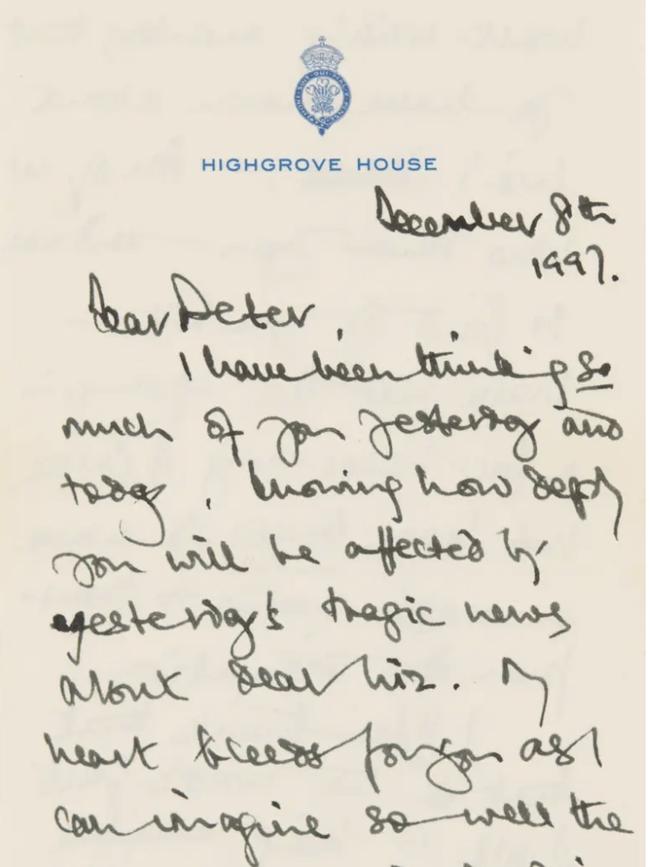 HIGHGROVE HOUSE
December 8th
1997.
Dear Peter,
I have been thinking so
much of you yesterday and
today, knowing how deeply
you will be affected by
yesterday's tragic news
about dear Liz. My
heart bleeds for you as I
can imagine so well the